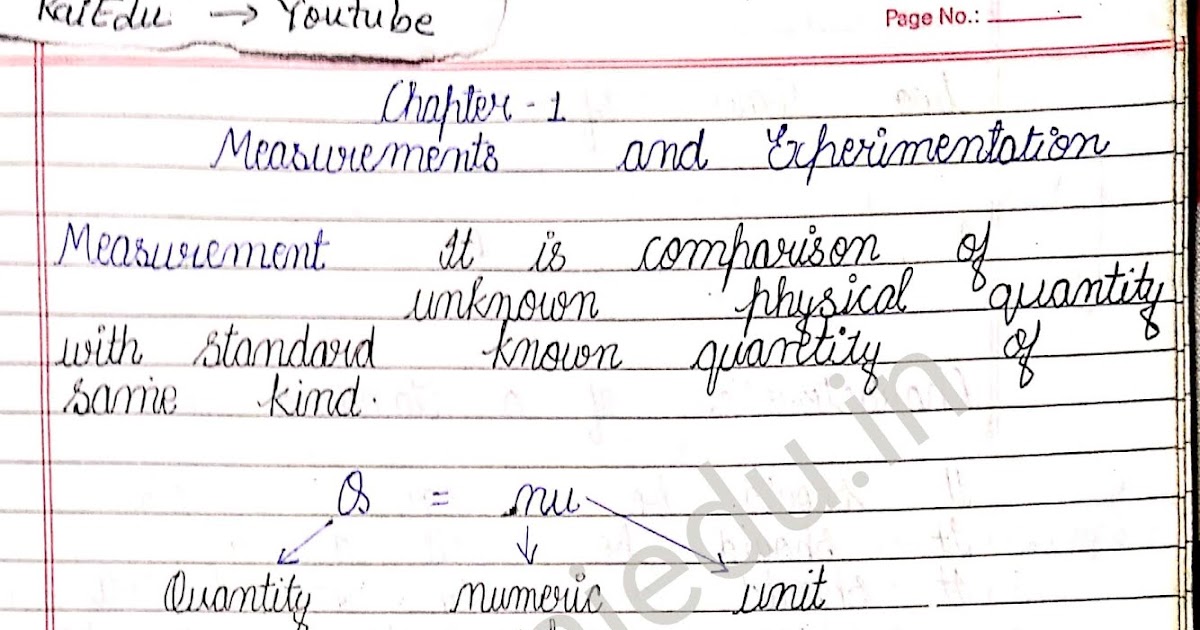 KaiEdu → Youtube
Page No.:
Chapter - 1
Measurements and Experimentation
Measurement It is comparison of
unknown physical quantity
with standard known quantity of
same kind.
Q = nu
Quantity numeric unit
edu.in